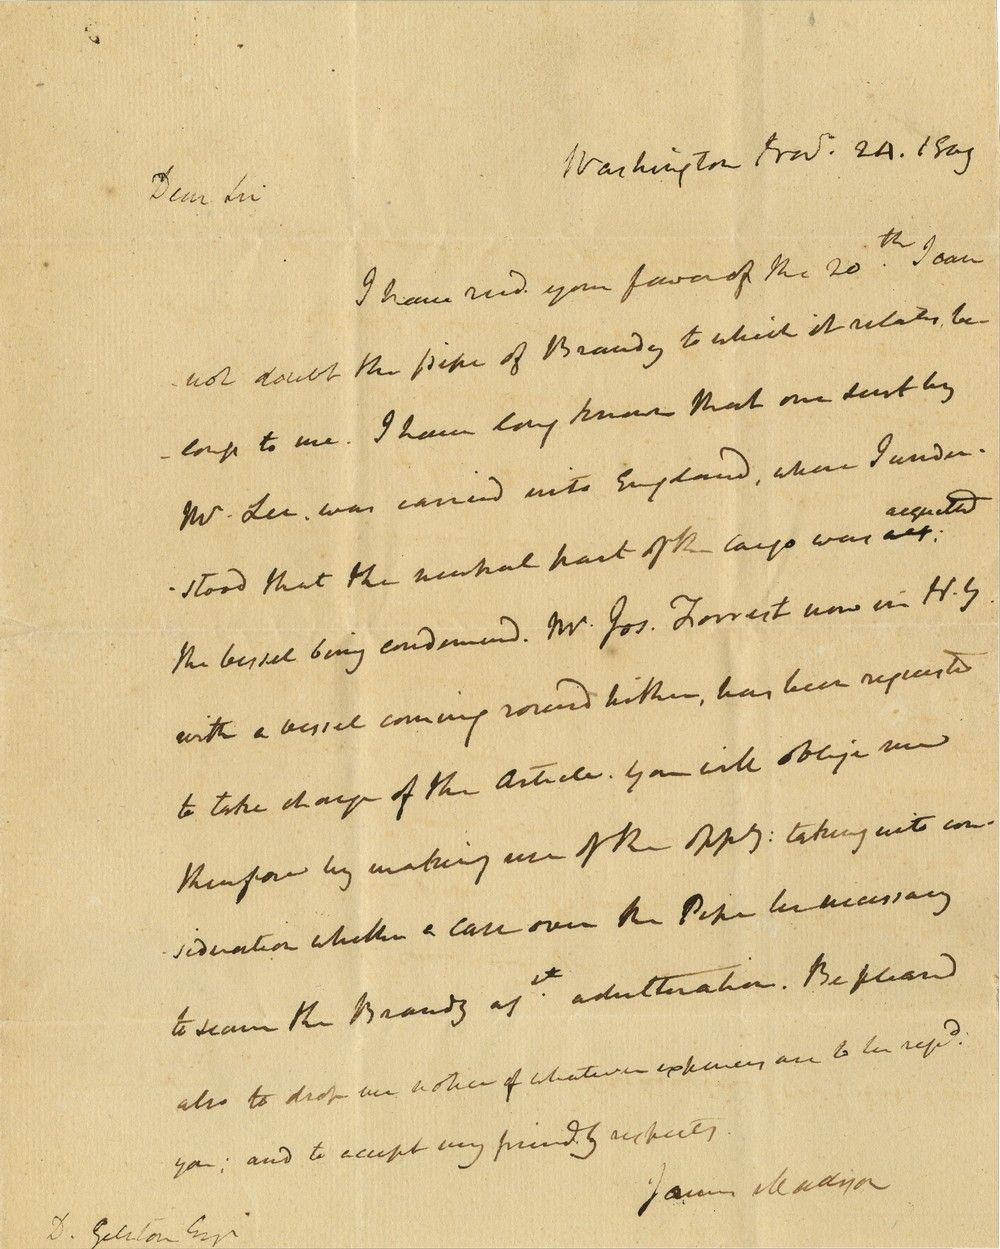 Washington 24. 1809
Dear Sir
I have recd. your favor of the 20.th I can
not doubt the pipe of Brandy to which it relates, be-
-longs to me. I have long known that one sent by
Mr. Lee, was carried into England, where I under-
-stood that the neutral part of the Cargo was acquitted
the vessel being condemned. Mr. Jos. Forrest now in N.Y.
with a vessel coming round hither, has been requested
to take charge of the Article. You will oblige me
therefore by making use of the oppy: taking into con-
sideration whether a case over the Pipe be necessary
to secure the Brandy agst. adulteration. Be pleased
also to drop me notice of whatever expences are to be repd.
you; and to accept my friendly respects.
James Madison
D. Gelston Esqr